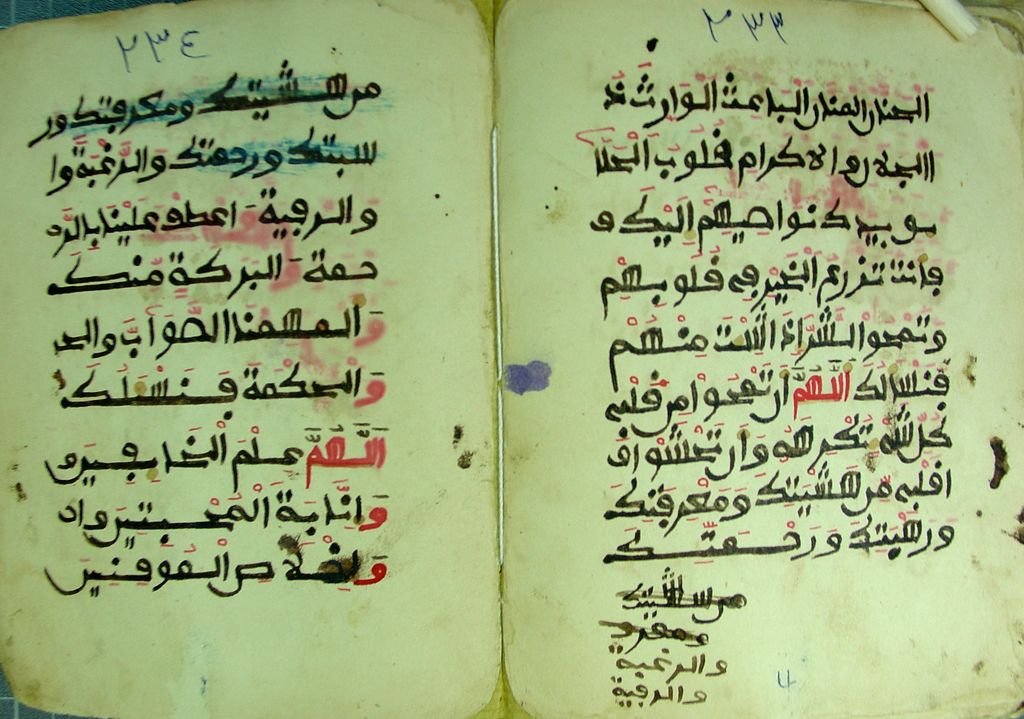 ٢٣٣
الحنان المنان الباعث الوارث ذ
االجلال والاكرام فلوب الخلا
يو بيدك نواصيهم اليك و
فانت تزرع الخير في فلوبهم
وتمحوا الشر اذا شئت منهم
فنسالك اللهم ان تمحوا من فلبي
كل شيء تكرهه وان تحشوا
افلبي من خشيتك ومعرفتك
ورهبتك ورحمتك
من خشيتك
ومعرف
والرغبة
والرفبة
٢٣٤
من خشيتك ومعرفتك ور
هبتك ورحمتك والرغبة وا
والرفبة اعطف علينا بالر
حمة والبركة منك
والهمنا الصواب والد
والحكمة فنسئلك
اللهم علم الخايفين
وانابة المخبتين واد
واخلاص الموفنين